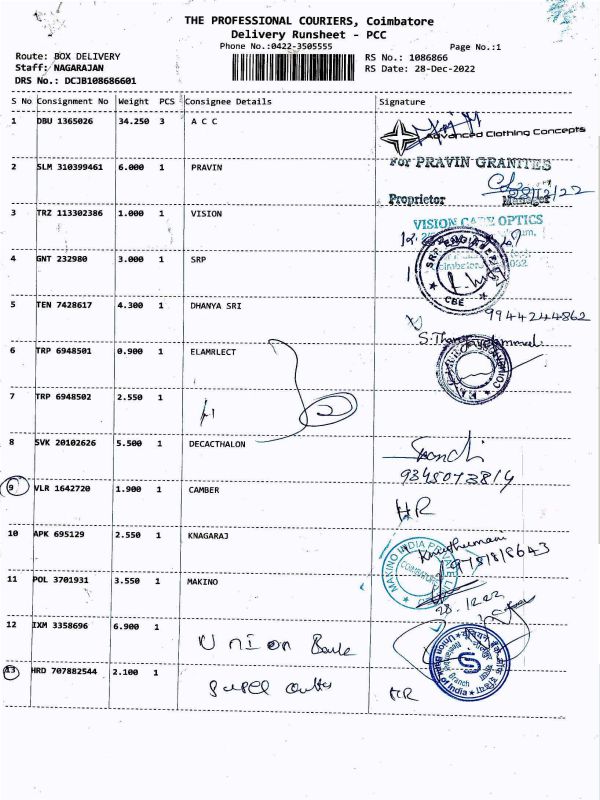 THE PROFESSIONAL COURIERS, Coimbatore
Delivery Runsheet - PCC
Phone No.:0422-3505555 Page No.:1
Route: BOX DELIVERY RS No.: 1086866
Staff: NAGARAJAN RS Date: 28-Dec-2022
DRS No.: DCJB108686601
S No Consignment No Weight PCS Consignee Details Signature
1 DBU 1365026 34.250 3 A C C
Advanced Clothing Concepts
For PRAVIN GRANITES
2 SLM 310399461 6.000 1 PRAVIN
28/12/22
Proprietor Manager
3 TRZ 113302386 1.000 1 VISION
VISION CARE OPTICS
4 GNT 232980 3.000 1 SRP
SRP ENGINEERING
CBE
5 TEN 7428617 4.300 1 DHANYA SRI
9944244862
6 TRP 6948501 0.900 1 ELAMRLECT
7 TRP 6948502 2.550 1
8 SVK 20102626 5.500 1 DECACTHALON
9345073814
9 VLR 1642720 1.900 1 CAMBER
HR
10 APK 695129 2.550 1 KNAGARAJ
MAKINO INDIA
11 POL 3701931 3.550 1 MAKINO
28.12.22
12 IXM 3358696 6.900 1
Union Bank
Union Bank of India
Branch
13 HRD 707882544 2.100 1
HR